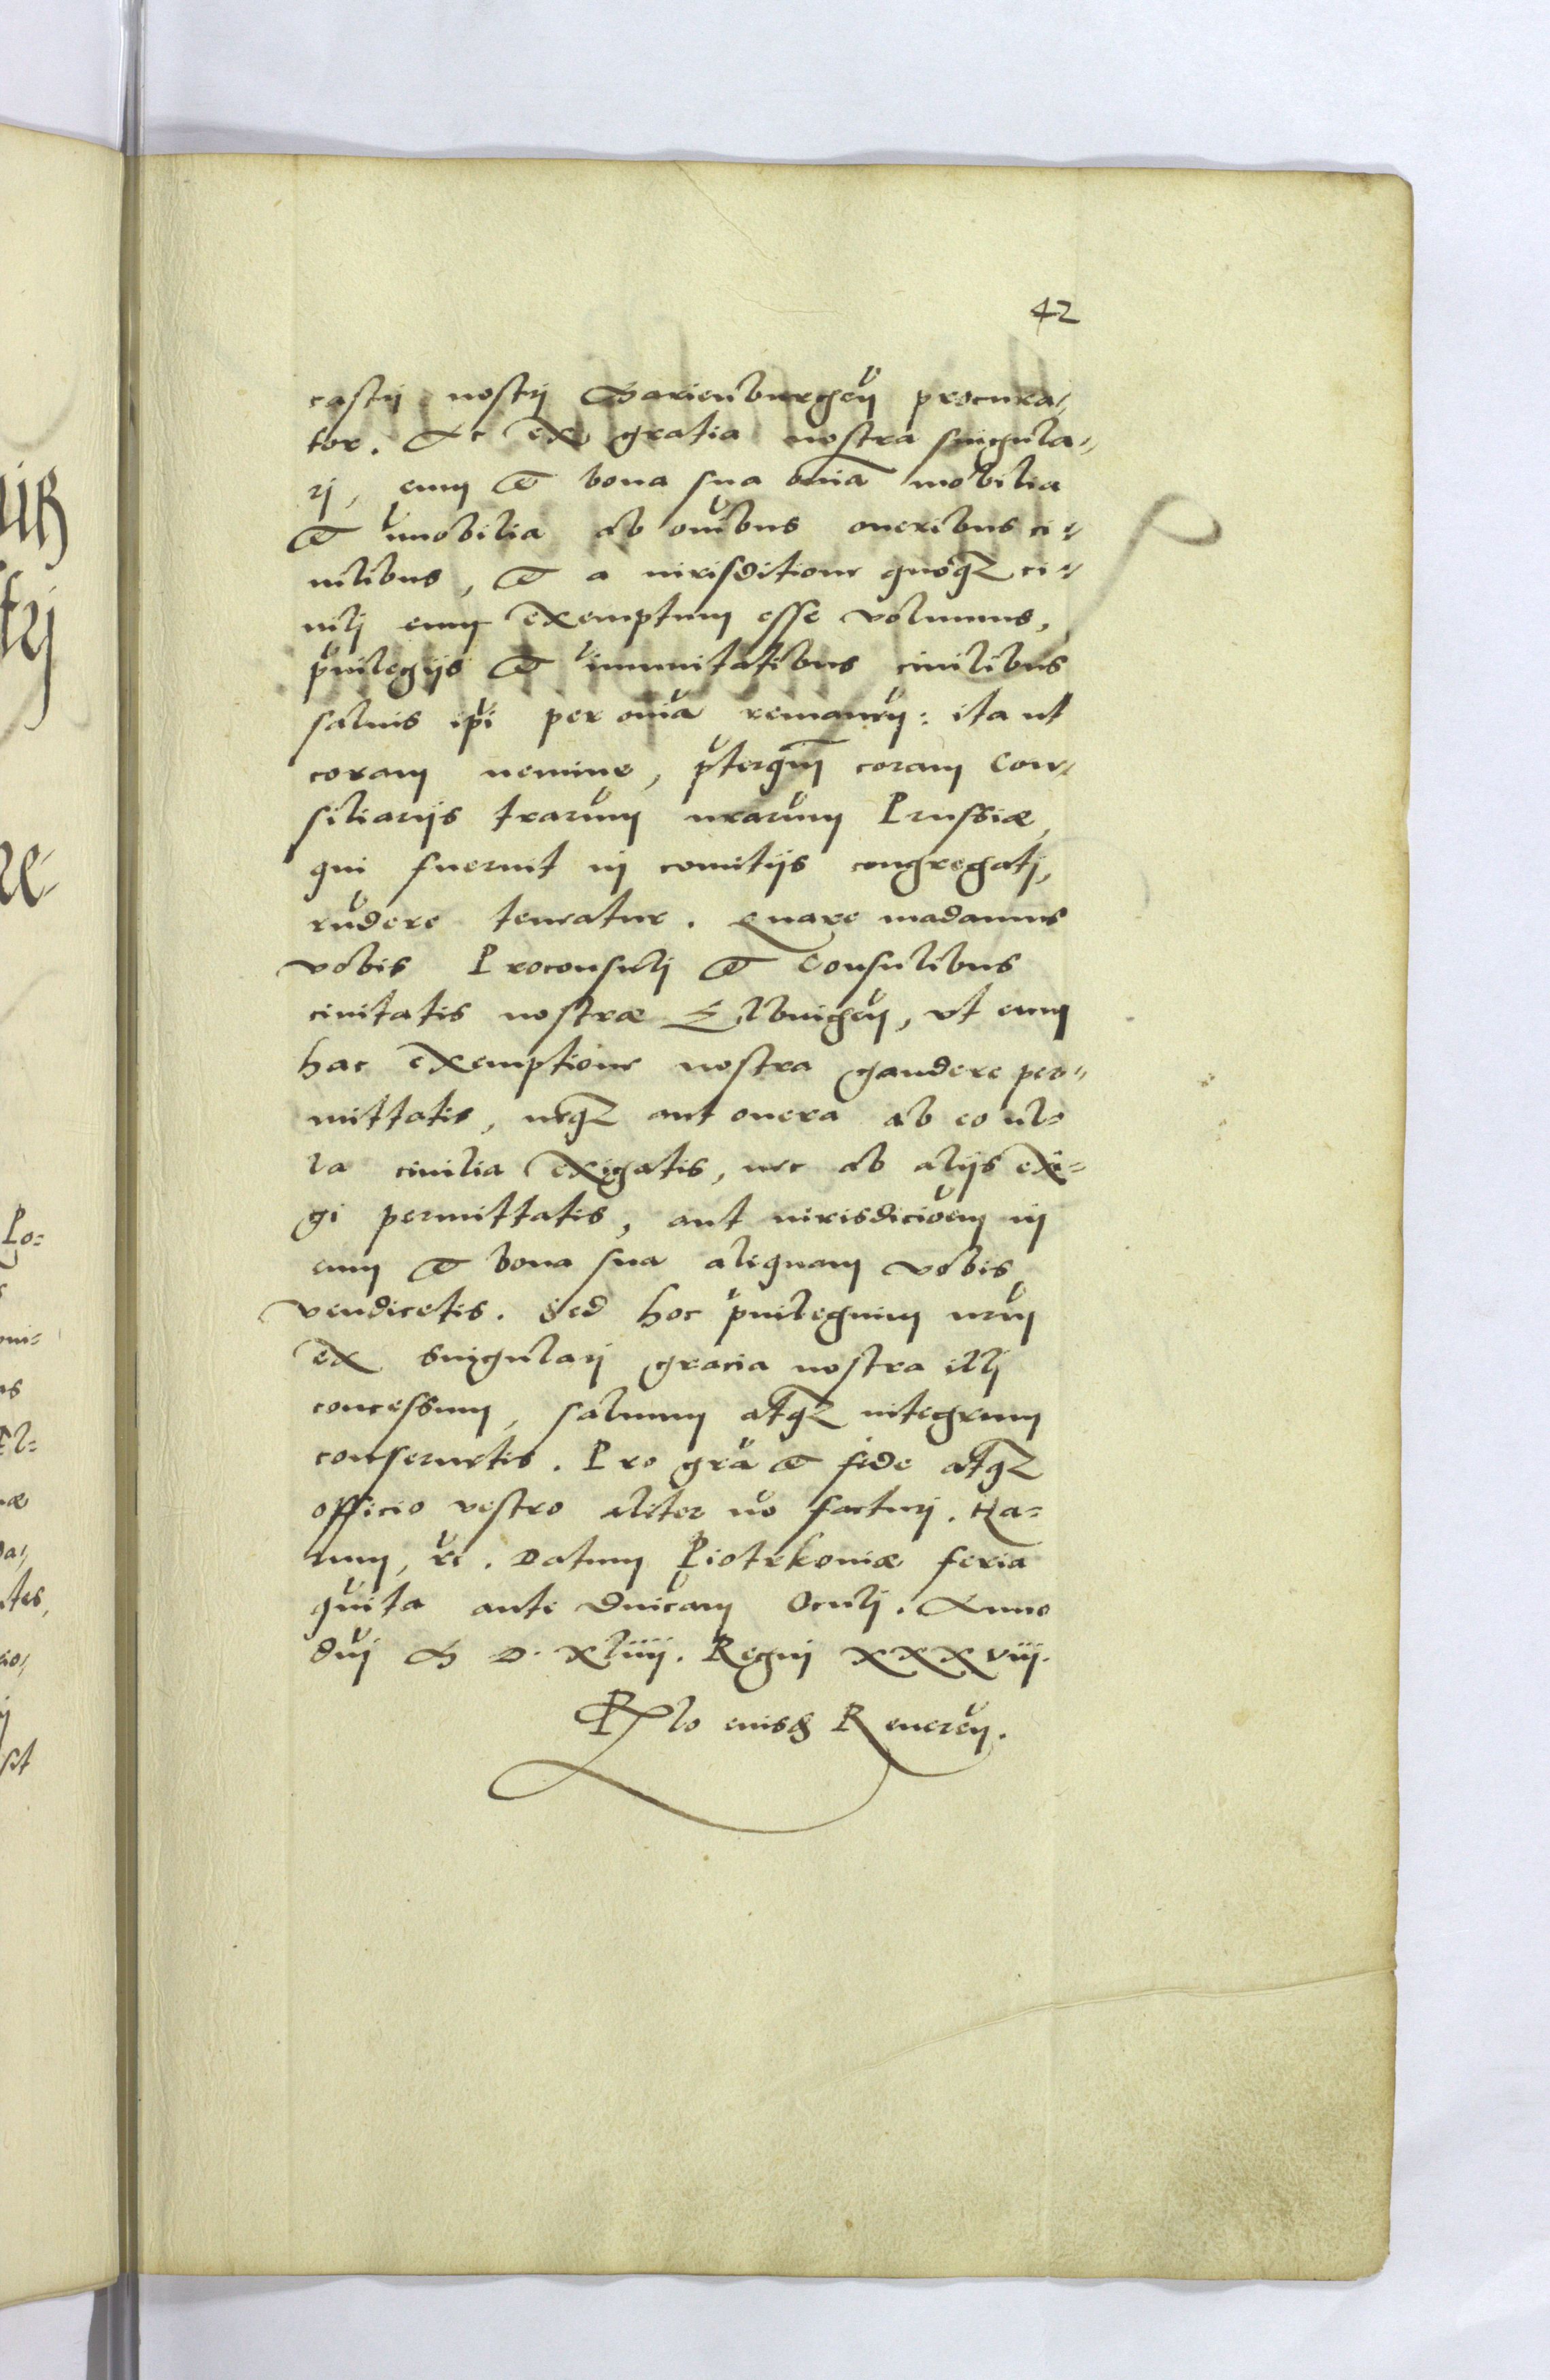 42
castrj nostrj Marienburgeñ procura-
tor. Ac ex gratia nostra singula-
rj, eum et bona sua om̃ia mobilia
et im̃obilia ab om̃ibus oneribus ci-
uilibus, et a iurisditione quoqz ci-
uilj eum exemptum esse volumus,
p̃uilegijs et im̃unitatibus ciuilibus
saluis ip̃i per om̃ia remaneñ: ita ut
coram nemine, p̃terq̃m coram Con-
siliarijs trarum̃ nrarum̃ Prussiæ,
qui fuerint in comitijs congregatj,
rñdere teneatur. Quare mãdamus
vobis Proconsulj et Consulibus
ciuitatis nostræ Elbingeñ, vt eum
hac exemptione nostra gaudere per-
mittatis, neqz aut onera ab eo ul-
la ciuilia exigatis, nec ab alijs exi-
gi permittatis, aut iurisdicioñem in
eum et bona sua aliquam vobis
vendicetis. Sed hoc p̃uilegium nrũm
ex singularj gracia nostra illj
concessum, saluum atqz integrum
conseruetis. Pro gr̃a et fide atqz
officio vestro aliter nõ facturj. Ha-
rum, etc. Datum Piotrkouiæ feria
quĩta ante Dñicam Oculj. Anno
dñj M D XLiiij. Regnj XXXViij.